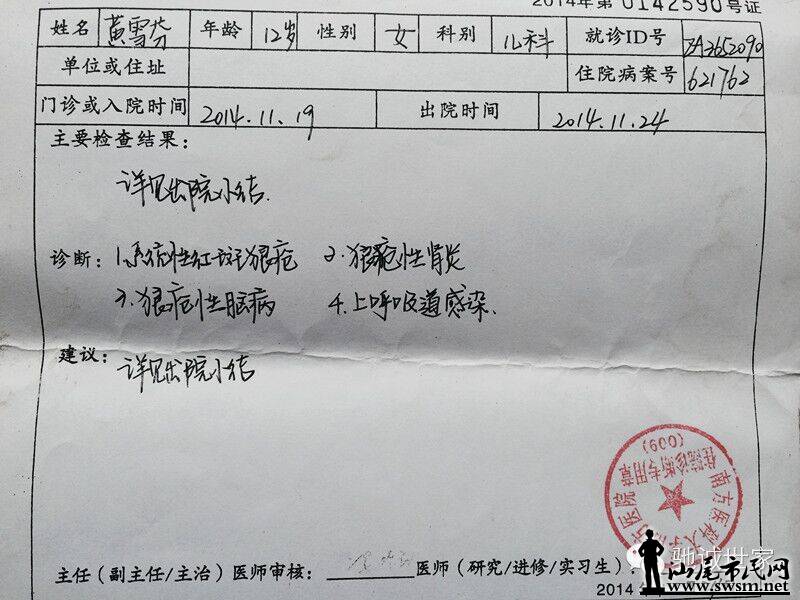 2014年第0142590号证
姓名 黄雪芬 年龄 12岁 性别 女 科别 儿科 就诊ID号 ZA3652090
单位或住址 住院病案号 621762
门诊或入院时间 2014.11.19 出院时间 2014.11.24
主要检查结果：
详见出院小结.
诊断：1.系统性红斑狼疮 2.狼疮性肾炎
3.狼疮性脑病 4.上呼吸道感染.
建议：
详见出院小结
南方医科大学 医院
住院诊断专用章
(600)
主任（副主任/主治）医师审核： 医师（研究/进修/实习生）：
2014
驰诚世家
汕尾市民网
www.swsm.net